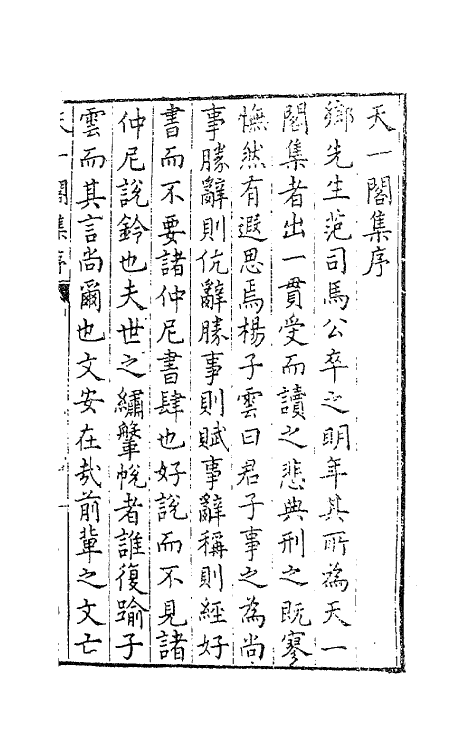 天一閣集序
鄉先生范司馬公卒之明年其所為天一
閣集者出一貫受而讀之悲典刑之旣寥
憮然有遐思焉楊子雲曰君子事之為尚
事勝辭則伉辭勝事則賦事辭稱則經好
書而不要諸仲尼書肆也好說而不見諸
仲尼說鈴也夫世之繡鞶帨者誰復踰子
雲而其言尚爾也文安在哉前軰之文亡
天一閣集序